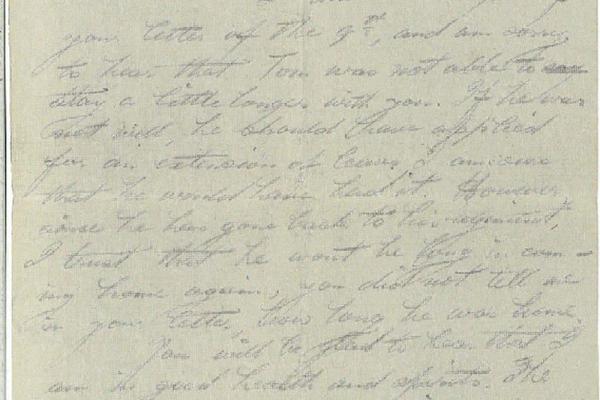 your letter of the 9th, and am sorry
to hear that Tom was not able to
stay a little longer with you. If he was
not well, he should have applied
for an extension of leave, I am sure
that he would have had it. However
since he has gone back to his regiment,
I trust that he wont be long in com-
ing home again, you did not tell me
in your letter, how long he was home.
You will be glad to hear that I
am in good health and spirits. The